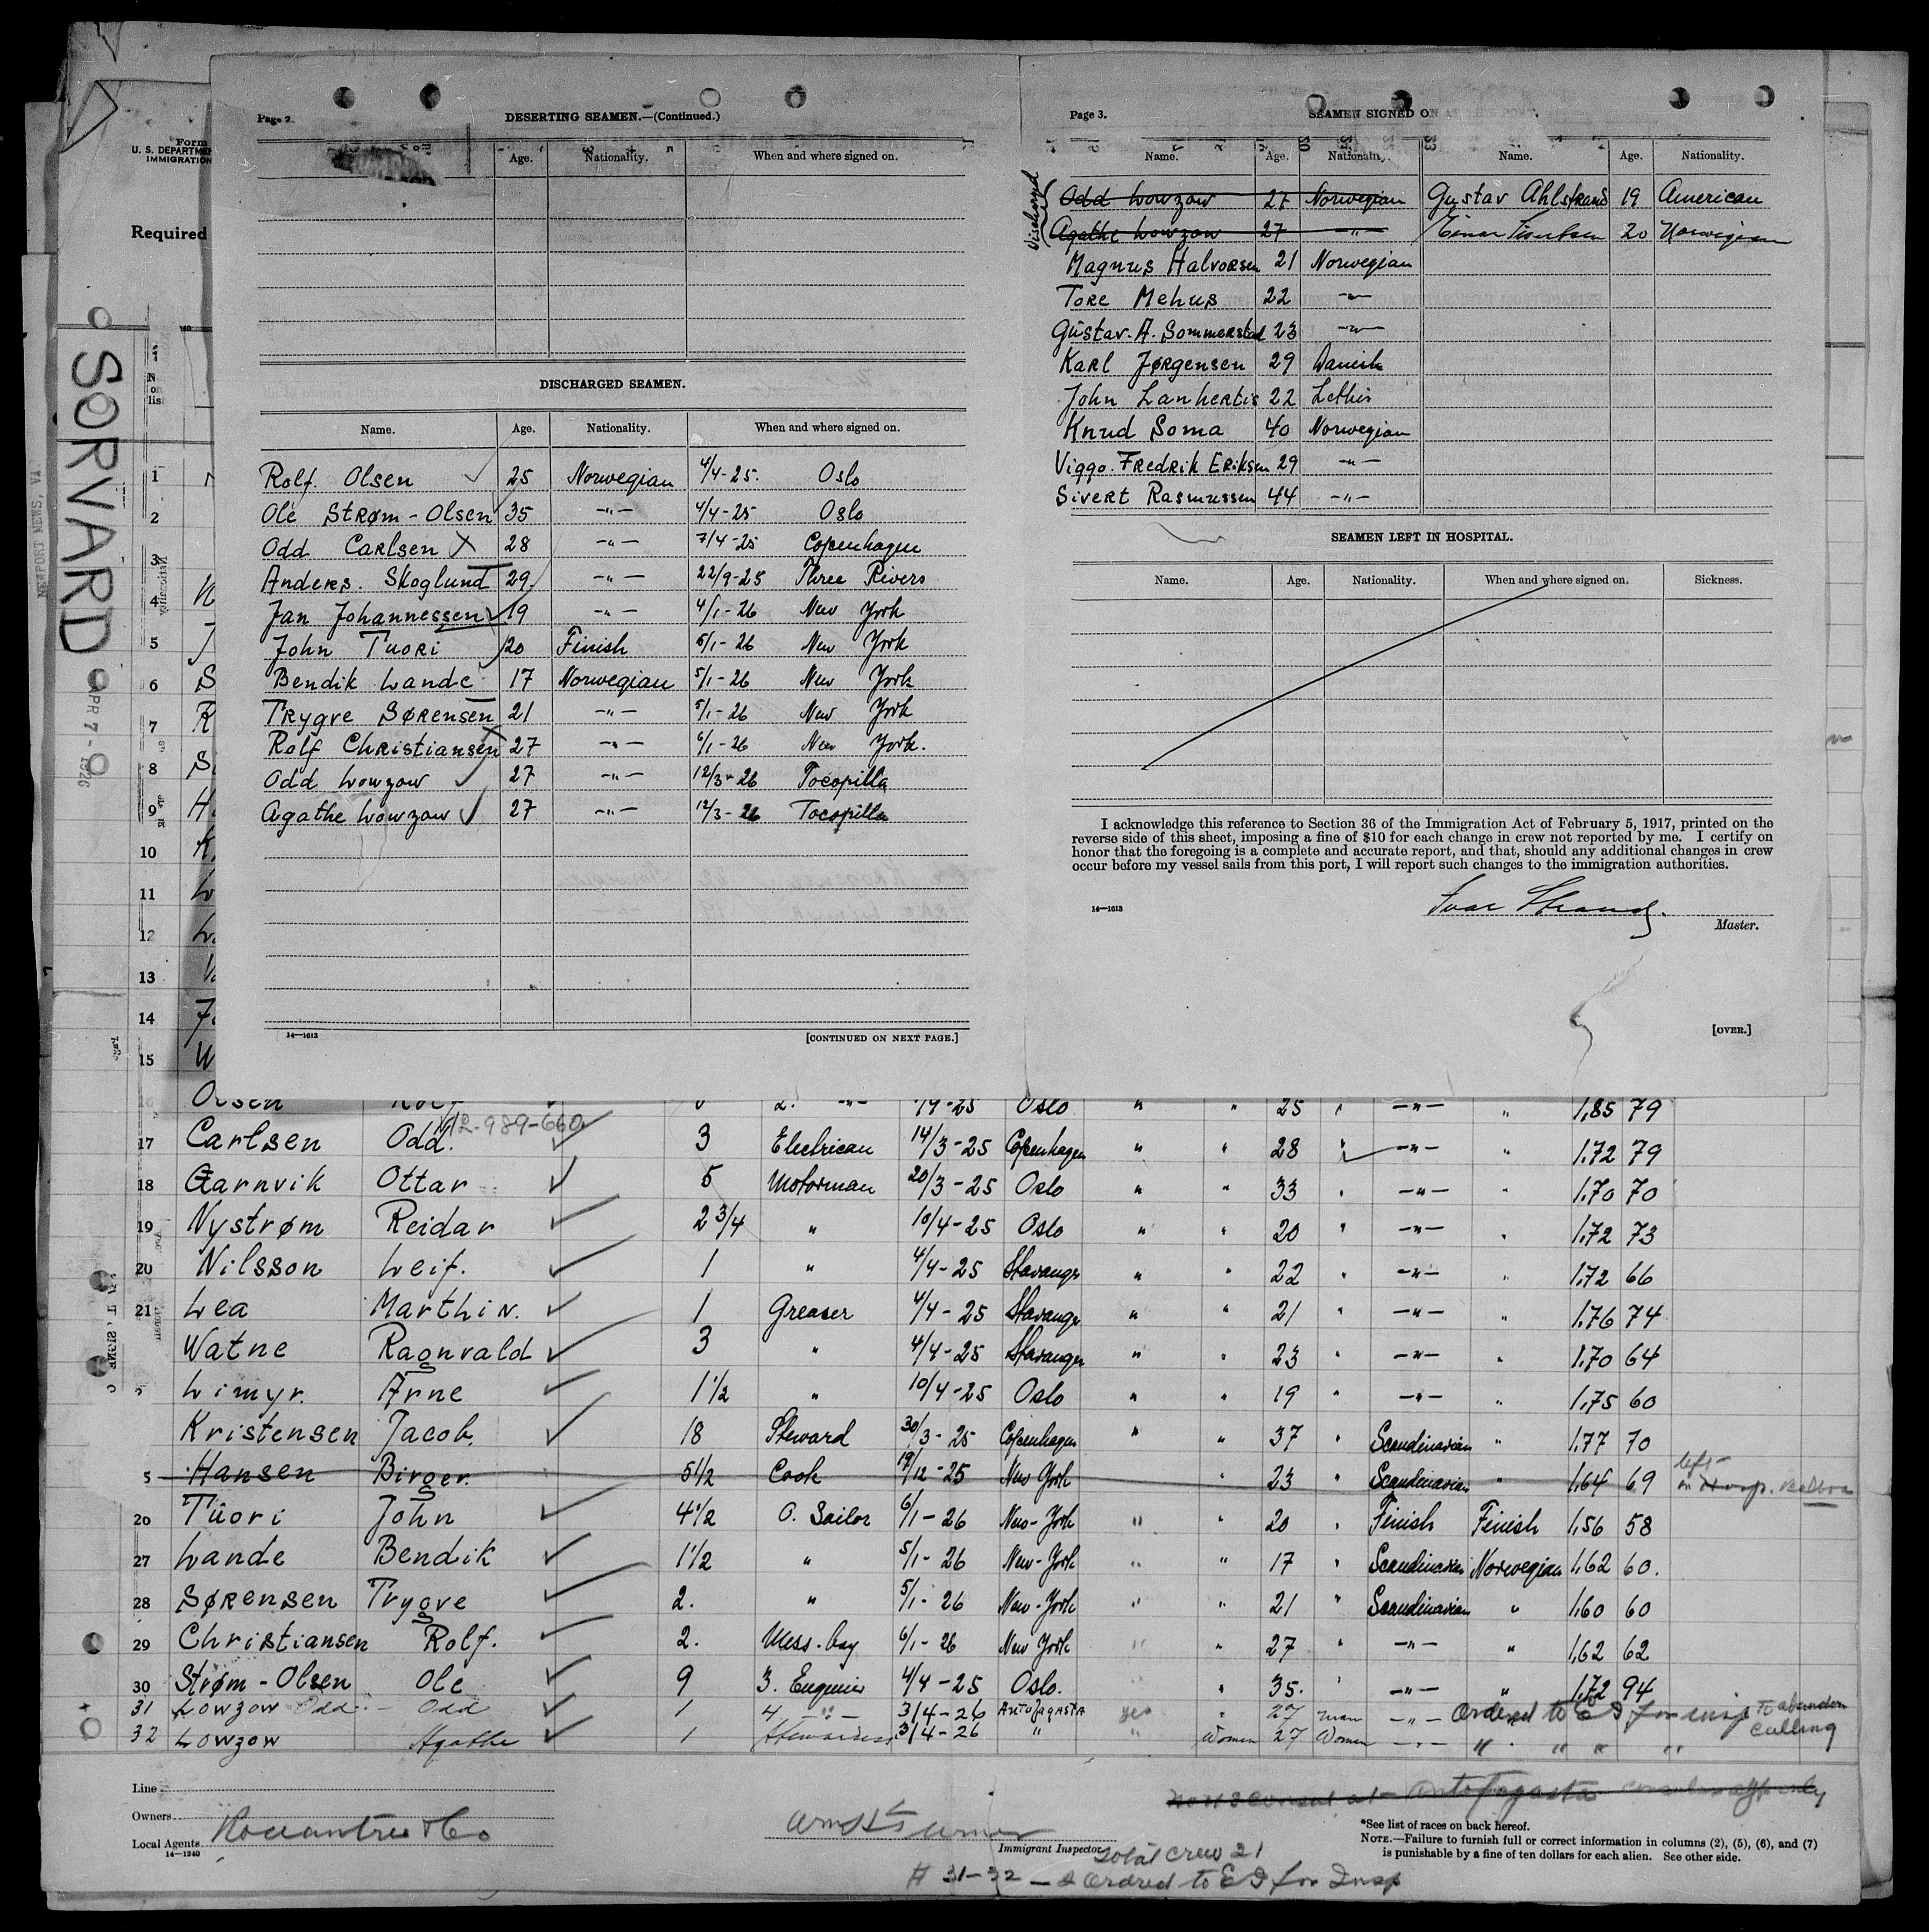 Form
U. S. DEPARTME
IMMIGRATION
Required
SORVARD
APR 7 - 1926
NEWPORT NEWS, VA
Page 2.
DESERTING SEAMEN.—(Continued.)
Age. Nationality. When and where signed on.
DISCHARGED SEAMEN.
Name. Age. Nationality. When and where signed on.
Rolf. Olsen 25 Norwegian 4/4-25. Oslo
Ole Strøm-Olsen 35 -"- 4/4-25 Oslo
Odd Carlsen X 28 -"- 7/4-25 Copenhagen
Anders. Skoglund 29 -"- 22/9-25 Three Rivers
Jan Johannessen 19 -"- 4/1-26 New York
John Tuori 20 Finish 6/1-26 New York
Bendik Lande 17 Norwegian 5/1-26 New York
Trygve Sørensen 21 -"- 5/1-26 New York
Rolf Christiansen 27 -"- 6/1-26 New York.
Odd Lowzow 27 -"- 12/3-26 Tocopilla
Agathe Lowzow 27 -"- 12/3-26 Tocopilla
14—1613
[CONTINUED ON NEXT PAGE.]
Page 3.
SEAMEN SIGNED ON
Name. Age. Nationality. Name. Age. Nationality.
Discharged
Odd Lowzow 27 Norwegian Gustav Ahlstrand 19 American
Agathe Lowzow 27 -"- Einar 20 Norwegian
Magnus Halvorsen 21 Norwegian
Tore Mehus 22 -"-
Gustav. A. Sommerstad 23 -"-
Karl Jørgensen 29 Danish
John Lanhertis 22 Lethis
Knud Soma 40 Norwegian
Viggo. Fredrik Eriksen 29 -"-
Sivert Rasmussen 44 -"-
SEAMEN LEFT IN HOSPITAL.
Name. Age. Nationality. When and where signed on. Sickness.
I acknowledge this reference to Section 36 of the Immigration Act of February 5, 1917, printed on the
reverse side of this sheet, imposing a fine of $10 for each change in crew not reported by me. I certify on
honor that the foregoing is a complete and accurate report, and that, should any additional changes in crew
occur before my vessel sails from this port, I will report such changes to the immigration authorities.
14—1613
Ivar Strand.
Master.
[OVER.]
1
2
3
4
5
6
7
8
9
10
11
12
13
14
15
Olsen Rolf 2. -"- 4/4-25 Oslo " " 25 " -"- " 1,85 79
12-989-660
17 Carlsen Odd. 3 Electrican 14/3-25 Copenhagen " " 28 " -"- " 1,72 79
18 Garnvik Ottar 5 Motorman 20/3-25 Oslo " " 33 " -"- " 1,70 70
19 Nystrøm Reidar 2 3/4 " 10/4-25 Oslo " " 20 " -"- " 1,72 73
20 Nilsson Leif. 1 " 4/4-25 Stavanger " " 22 " -"- " 1,72 66
21 Lea Marthin. 1 Greaser 4/4-25 Stavanger " " 21 " -"- " 1,76 74
Watne Ragnvald 3 " 4/4-25 Stavanger " " 23 " -"- " 1,70 64
Limyr. Arne 1 1/2 " 10/4-25 Oslo " " 19 " -"- " 1,75 60
Kristensen Jacob. 18 Steward 30/3-25 Copenhagen " " 37 " Scandinavian " 1,77 70
5 Hansen Birger. 5 1/2 Cook 19/12-25 New York " 23 " Scandinavian " 1,64 69 left in Hosp. Balboa
26 Tuori John 4 1/2 O. Sailor 6/1-26 New-York " " 20 " Finish Finish 1,56 58
27 Lande Bendik 1 1/2 " 5/1-26 New-York " " 17 " Scandinavian Norwegian 1,62 60.
28 Sørensen Trygve 2. " 5/1-26 New-York " " 21 " Scandinavian " 1,60 60
29 Christiansen Rolf. 2. Mess-boy 6/1-26 New York " " 27 " -"- " 1,62 62
30 Strøm-Olsen Ole 9 3. Engineer 4/4-25 Oslo. " " 35. " -"- " 1,72 94
31 Lowzow Odd - Odd 1 4 -"- 3/4-26 Antofagasta yes " 27 man -"- Ordered to EI for insp To abandon
32 Lowzow Agathe 1 Stewardess 3/4-26 " " Women 27 Women -"- " " " " calling
Line
Owners
Local Agents Rowantree & Co
14—1240
Immigrant Inspector.
Total Crew 21
# 31-32 - Ordred to EI for Insp
Antofagasta
*See list of races on back hereof.
NOTE.—Failure to furnish full or correct information in columns (2), (5), (6), and (7)
is punishable by a fine of ten dollars for each alien. See other side.